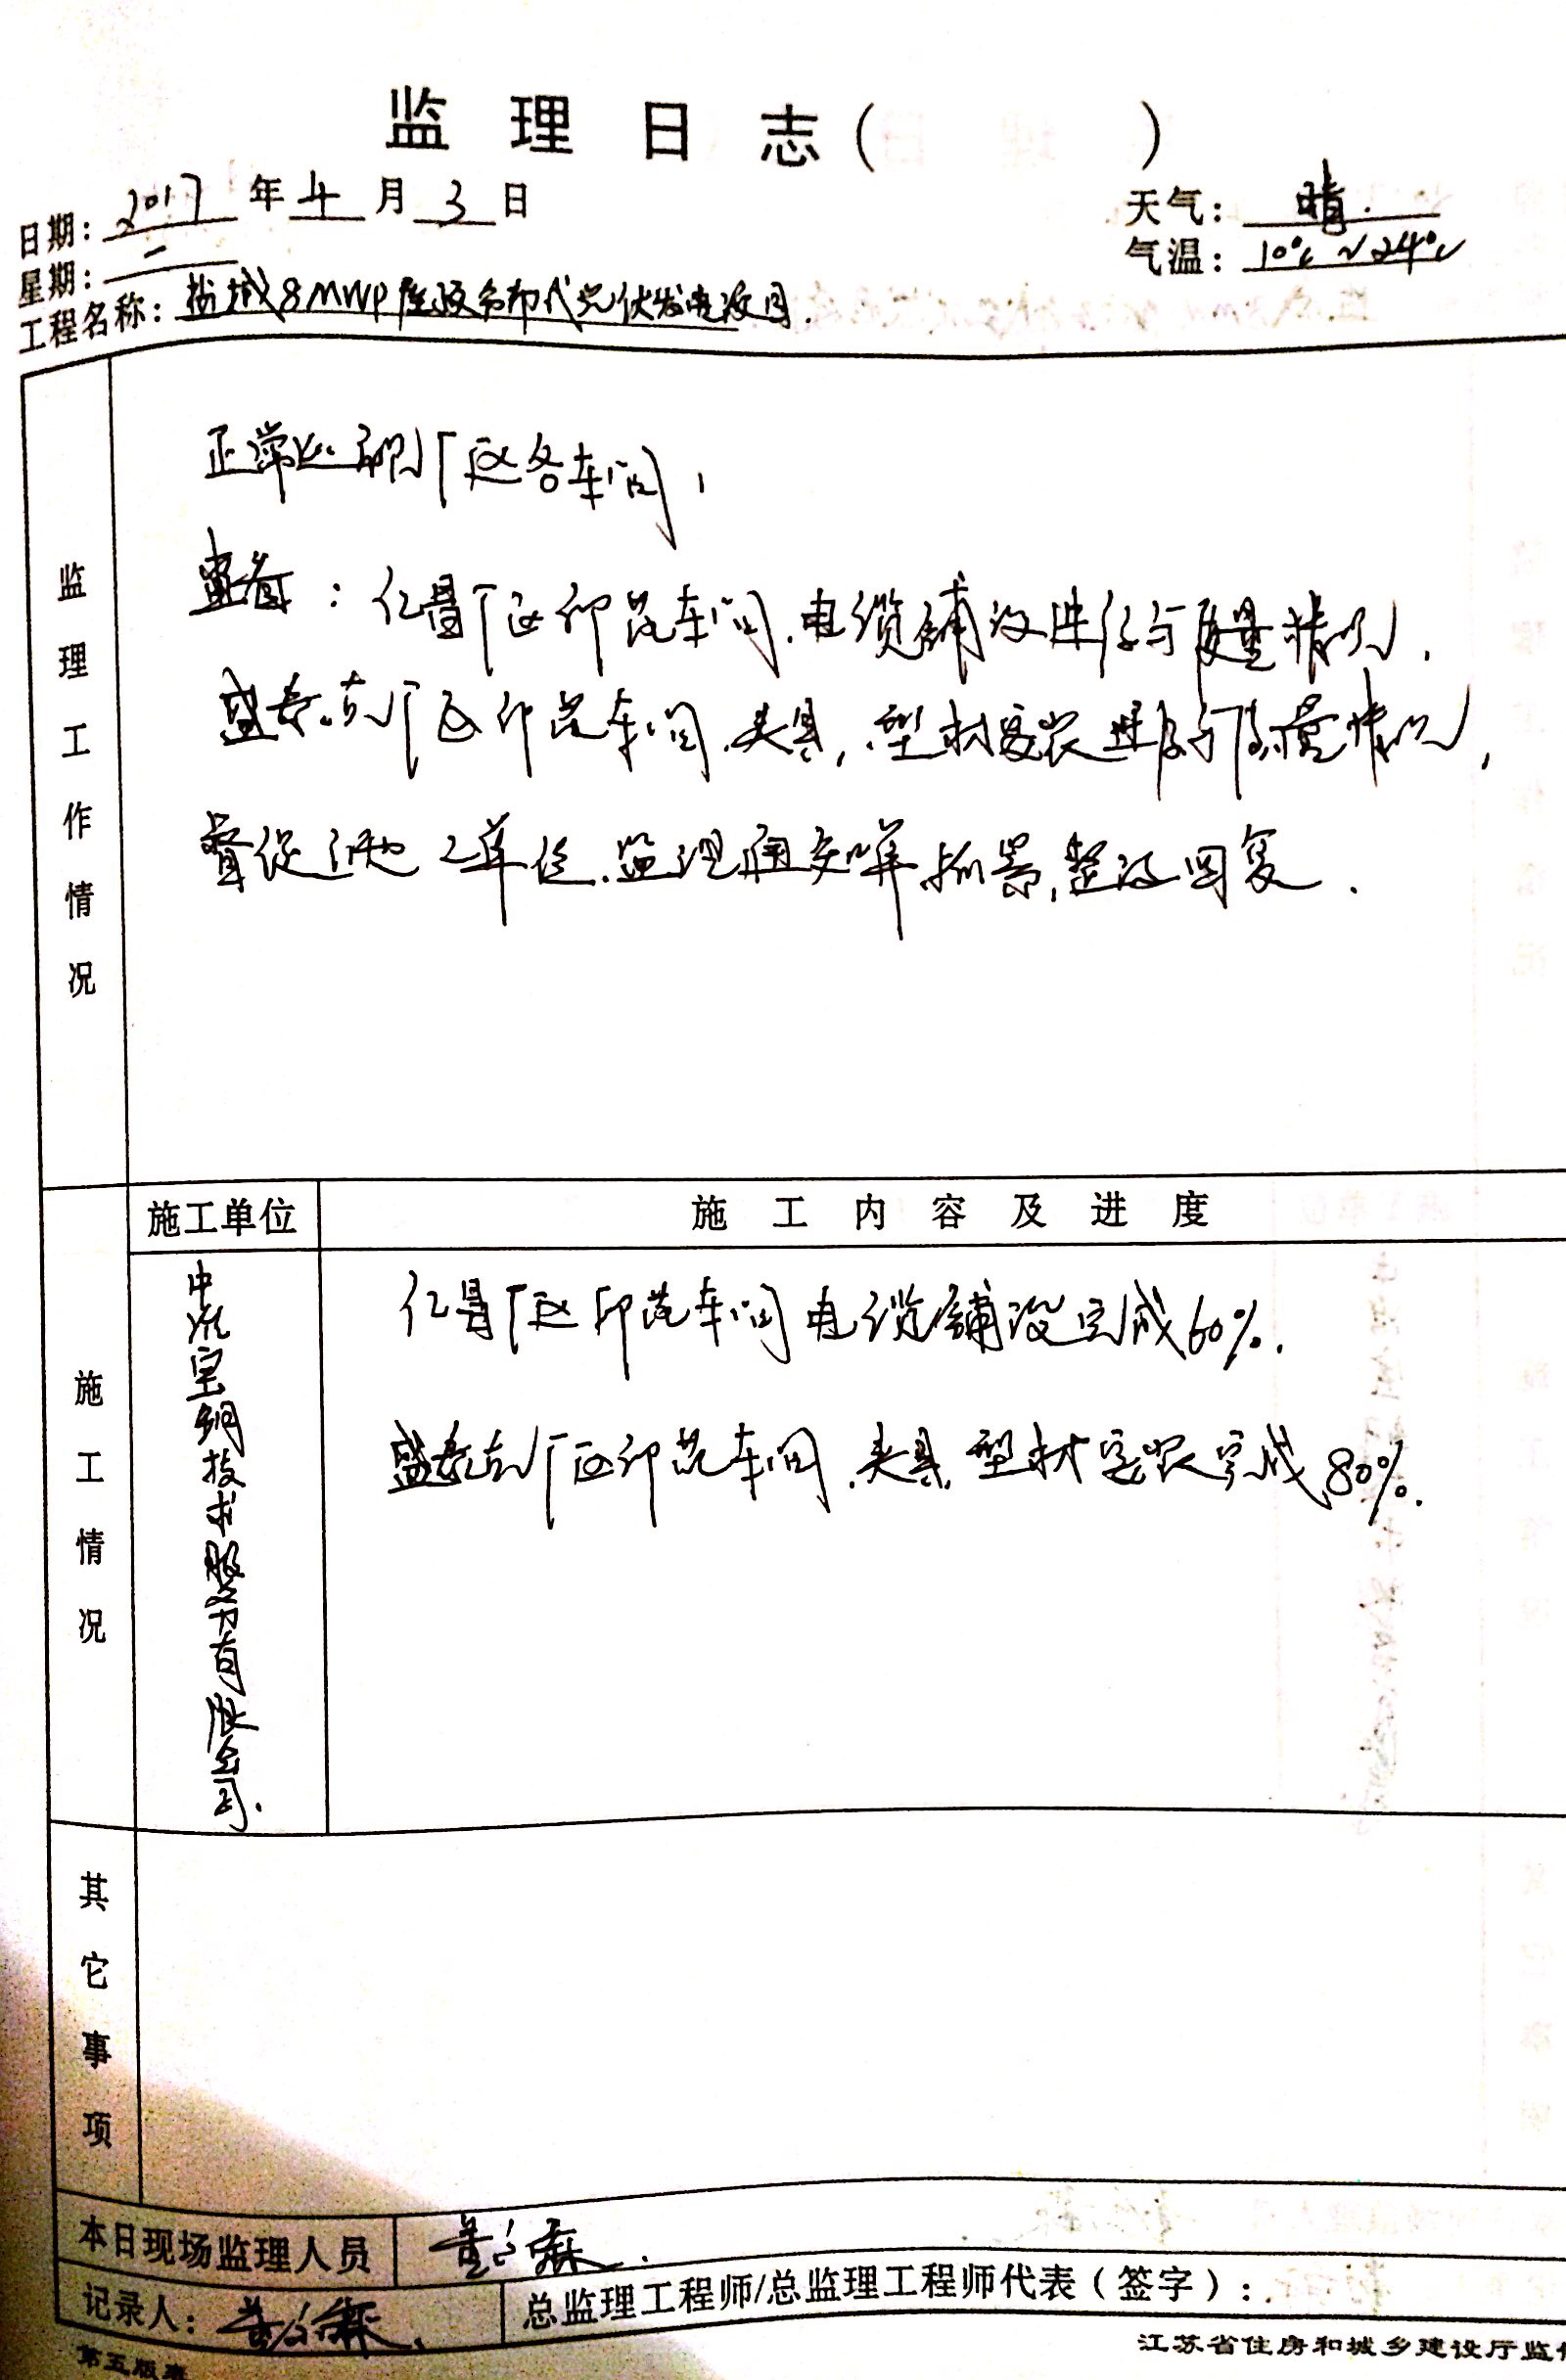 监理日志( )
日期: 2017 年 4 月 3 日
天气: 晴.
星期: 一
气温: 10℃~24℃
工程名称: 盐城8MWP屋顶分布式光伏发电项目.
监理工作情况
正常巡视厂区各车间,
查看: 仁昌厂区印花车间.电缆铺设进行与质量情况.
盛泰.东厂区印花车间.夹具,型材安装进行与质量情况,
督促施工单位.监理通知单.抓紧,整改回复.
施工单位
施工内容及进度
施工情况
中机宝钢技术服务有限公司.
仁昌厂区印花车间电缆铺设完成60%.
盛泰东厂区印花车间.夹具.型材安装完成80%.
其它事项
本日现场监理人员
记录人:
总监理工程师/总监理工程师代表(签字):
第五版表
江苏省住房和城乡建设厅监